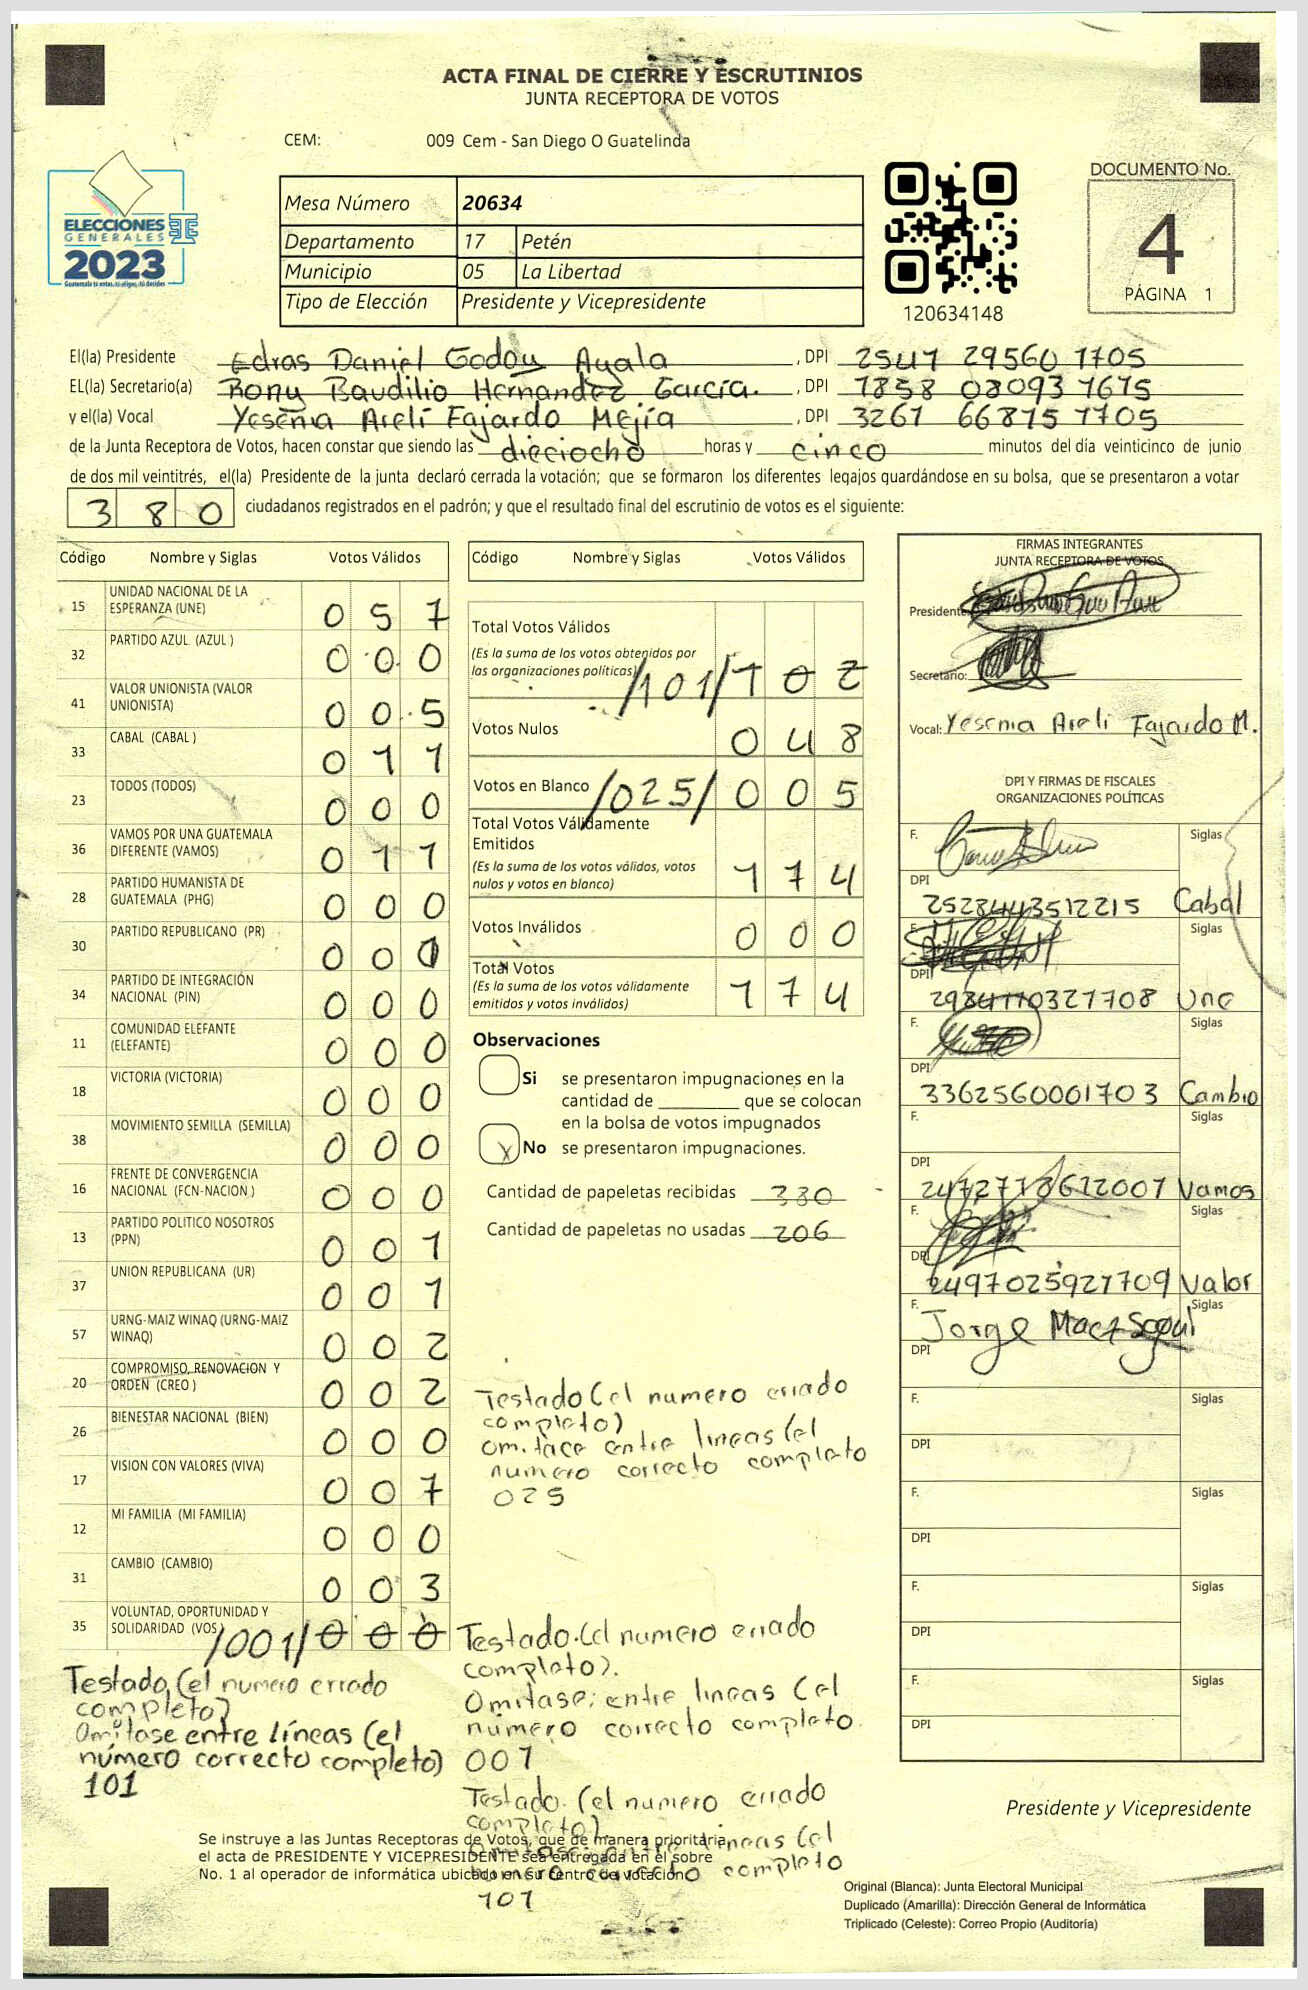 ACTA FINAL DE CIERRE Y ESCRUTINIOS
JUNTA RECEPTORA DE VOTOS
CEM: 009 Cem - San Diego O Guatelinda
ELECCIONES
GENERALES
2023
Mesa Número 20634
Departamento 17 Petén
Municipio 05 La Libertad
Tipo de Elección Presidente y Vicepresidente
120634148
DOCUMENTO No.
4
PÁGINA 1
El(la) Presidente Edras Daniel Godoy Ayala , DPI 2547 29560 1705
EL(la) Secretario(a) Rony Baudilio Hernandez García. , DPI 1858 08093 1615
y el(la) Vocal Yesenia Areli Fajardo Mejía , DPI 3261 66875 1705
de la Junta Receptora de Votos, hacen constar que siendo las dieciocho horas y cinco minutos del día veinticinco de junio
de dos mil veintitrés, el(la) Presidente de la junta declaró cerrada la votación; que se formaron los diferentes legajos quardándose en su bolsa, que se presentaron a votar
380 ciudadanos registrados en el padrón; y que el resultado final del escrutinio de votos es el siguiente:
Código Nombre y Siglas Votos Válidos
15 UNIDAD NACIONAL DE LA ESPERANZA (UNE) 057
32 PARTIDO AZUL (AZUL ) 000
41 VALOR UNIONISTA (VALOR UNIONISTA) 005
33 CABAL (CABAL ) 011
23 TODOS (TODOS) 000
36 VAMOS POR UNA GUATEMALA DIFERENTE (VAMOS) 011
28 PARTIDO HUMANISTA DE GUATEMALA (PHG) 000
30 PARTIDO REPUBLICANO (PR) 000
34 PARTIDO DE INTEGRACIÓN NACIONAL (PIN) 000
11 COMUNIDAD ELEFANTE (ELEFANTE) 000
18 VICTORIA (VICTORIA) 000
38 MOVIMIENTO SEMILLA (SEMILLA) 000
16 FRENTE DE CONVERGENCIA NACIONAL (FCN-NACION ) 000
13 PARTIDO POLITICO NOSOTROS (PPN) 001
37 UNION REPUBLICANA (UR) 001
57 URNG-MAIZ WINAQ (URNG-MAIZ WINAQ) 002
20 COMPROMISO, RENOVACION Y ORDEN (CREO ) 002
26 BIENESTAR NACIONAL (BIEN) 000
17 VISION CON VALORES (VIVA) 007
12 MI FAMILIA (MI FAMILIA) 000
31 CAMBIO (CAMBIO) 003
35 VOLUNTAD, OPORTUNIDAD Y SOLIDARIDAD (VOS) /001/ 000
Testado (el numero errado
completo)
Omitase entre líneas (el
número correcto completo)
101
Código Nombre y Siglas Votos Válidos
Total Votos Válidos
(Es la suma de los votos obtenidos por
las organizaciones políticas) /101/ 102
Votos Nulos 048
Votos en Blanco /025/ 005
Total Votos Válidamente
Emitidos
(Es la suma de los votos válidos, votos
nulos y votos en blanco) 174
Votos Inválidos 000
Total Votos
(Es la suma de los votos válidamente
emitidos y votos inválidos) 174
Observaciones
Si se presentaron impugnaciones en la
cantidad de ________ que se colocan
en la bolsa de votos impugnados
x No se presentaron impugnaciones.
Cantidad de papeletas recibidas 380
Cantidad de papeletas no usadas 206
Testado (el numero errado
completo)
omitace entre lineas (el
numero correcto completo
025
Testado. (el numero errado
completo).
Omitase: entre lineas (el
número correcto completo.
001
Testado. (el numero errado
completo)
Omitase: entre lineas (el
numero correcto completo
101
FIRMAS INTEGRANTES
JUNTA RECEPTORA DE VOTOS
Presidente:
Secretario:
Vocal: Yesenia Areli Fajardo M.
DPI Y FIRMAS DE FISCALES
ORGANIZACIONES POLÍTICAS
F. Siglas
DPI 2528443512215 Cabal
F. Siglas
DPI 2984110327708 Une
F. Siglas
DPI 3362560001703 Cambio
F. Siglas
DPI 2472718612001 Vamos
F. Siglas
DPI 2497025927709 Valor
F. Jorge Siglas
DPI
F. Siglas
DPI
F. Siglas
DPI
F. Siglas
DPI
F. Siglas
DPI
Presidente y Vicepresidente
Se instruye a las Juntas Receptoras de Votos, que de manera prioritaria
el acta de PRESIDENTE Y VICEPRESIDENTE sea entregada en el sobre
No. 1 al operador de informática ubicado en su centro de votación
Original (Blanca): Junta Electoral Municipal
Duplicado (Amarilla): Dirección General de Informática
Triplicado (Celeste): Correo Propio (Auditoría)